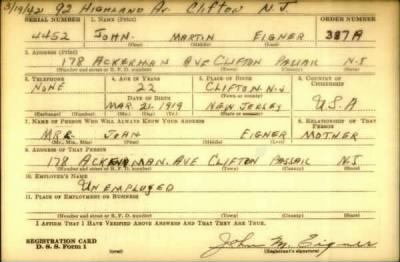 3/19/42 92 HIGHLAND AV. CLIFTON N.J
SERIAL NUMBER 1. NAME (Print) ORDER NUMBER
4452 JOHN. MARTIN EIGNER 387A
(First) (Middle) (Last)
2. ADDRESS (Print)
178 ACKERMAN AVE CLIFTON PASSAIC N.J
(Number and street or R. F. D. number) (Town) (County) (State)
3. TELEPHONE 4. AGE IN YEARS 5. PLACE OF BIRTH 6. COUNTRY OF CITIZENSHIP
NONE 22 CLIFTON. N.J
DATE OF BIRTH (Town or county)
MAR. 21. 1919 NEW JERSEY U.S.A
(Exchange) (Number) (Mo.) (Day) (Yr.) (State or country)
7. NAME OF PERSON WHO WILL ALWAYS KNOW YOUR ADDRESS 8. RELATIONSHIP OF THAT PERSON
MRS. JOHN EIGNER MOTHER
(Mr., Mrs., Miss) (First) (Middle) (Last)
9. ADDRESS OF THAT PERSON
178 ACKERMAN. AVE CLIFTON PASSAIC N.J
(Number and street or R. F. D. number) (Town) (County) (State)
10. EMPLOYER'S NAME
UNEMPLOYED
11. PLACE OF EMPLOYMENT OR BUSINESS
(Number and street or R. F. D. number) (Town) (County) (State)
I AFFIRM THAT I HAVE VERIFIED ABOVE ANSWERS AND THAT THEY ARE TRUE.
REGISTRATION CARD
D. S. S. Form 1 (over) John M. Eigner
(Registrant's signature)